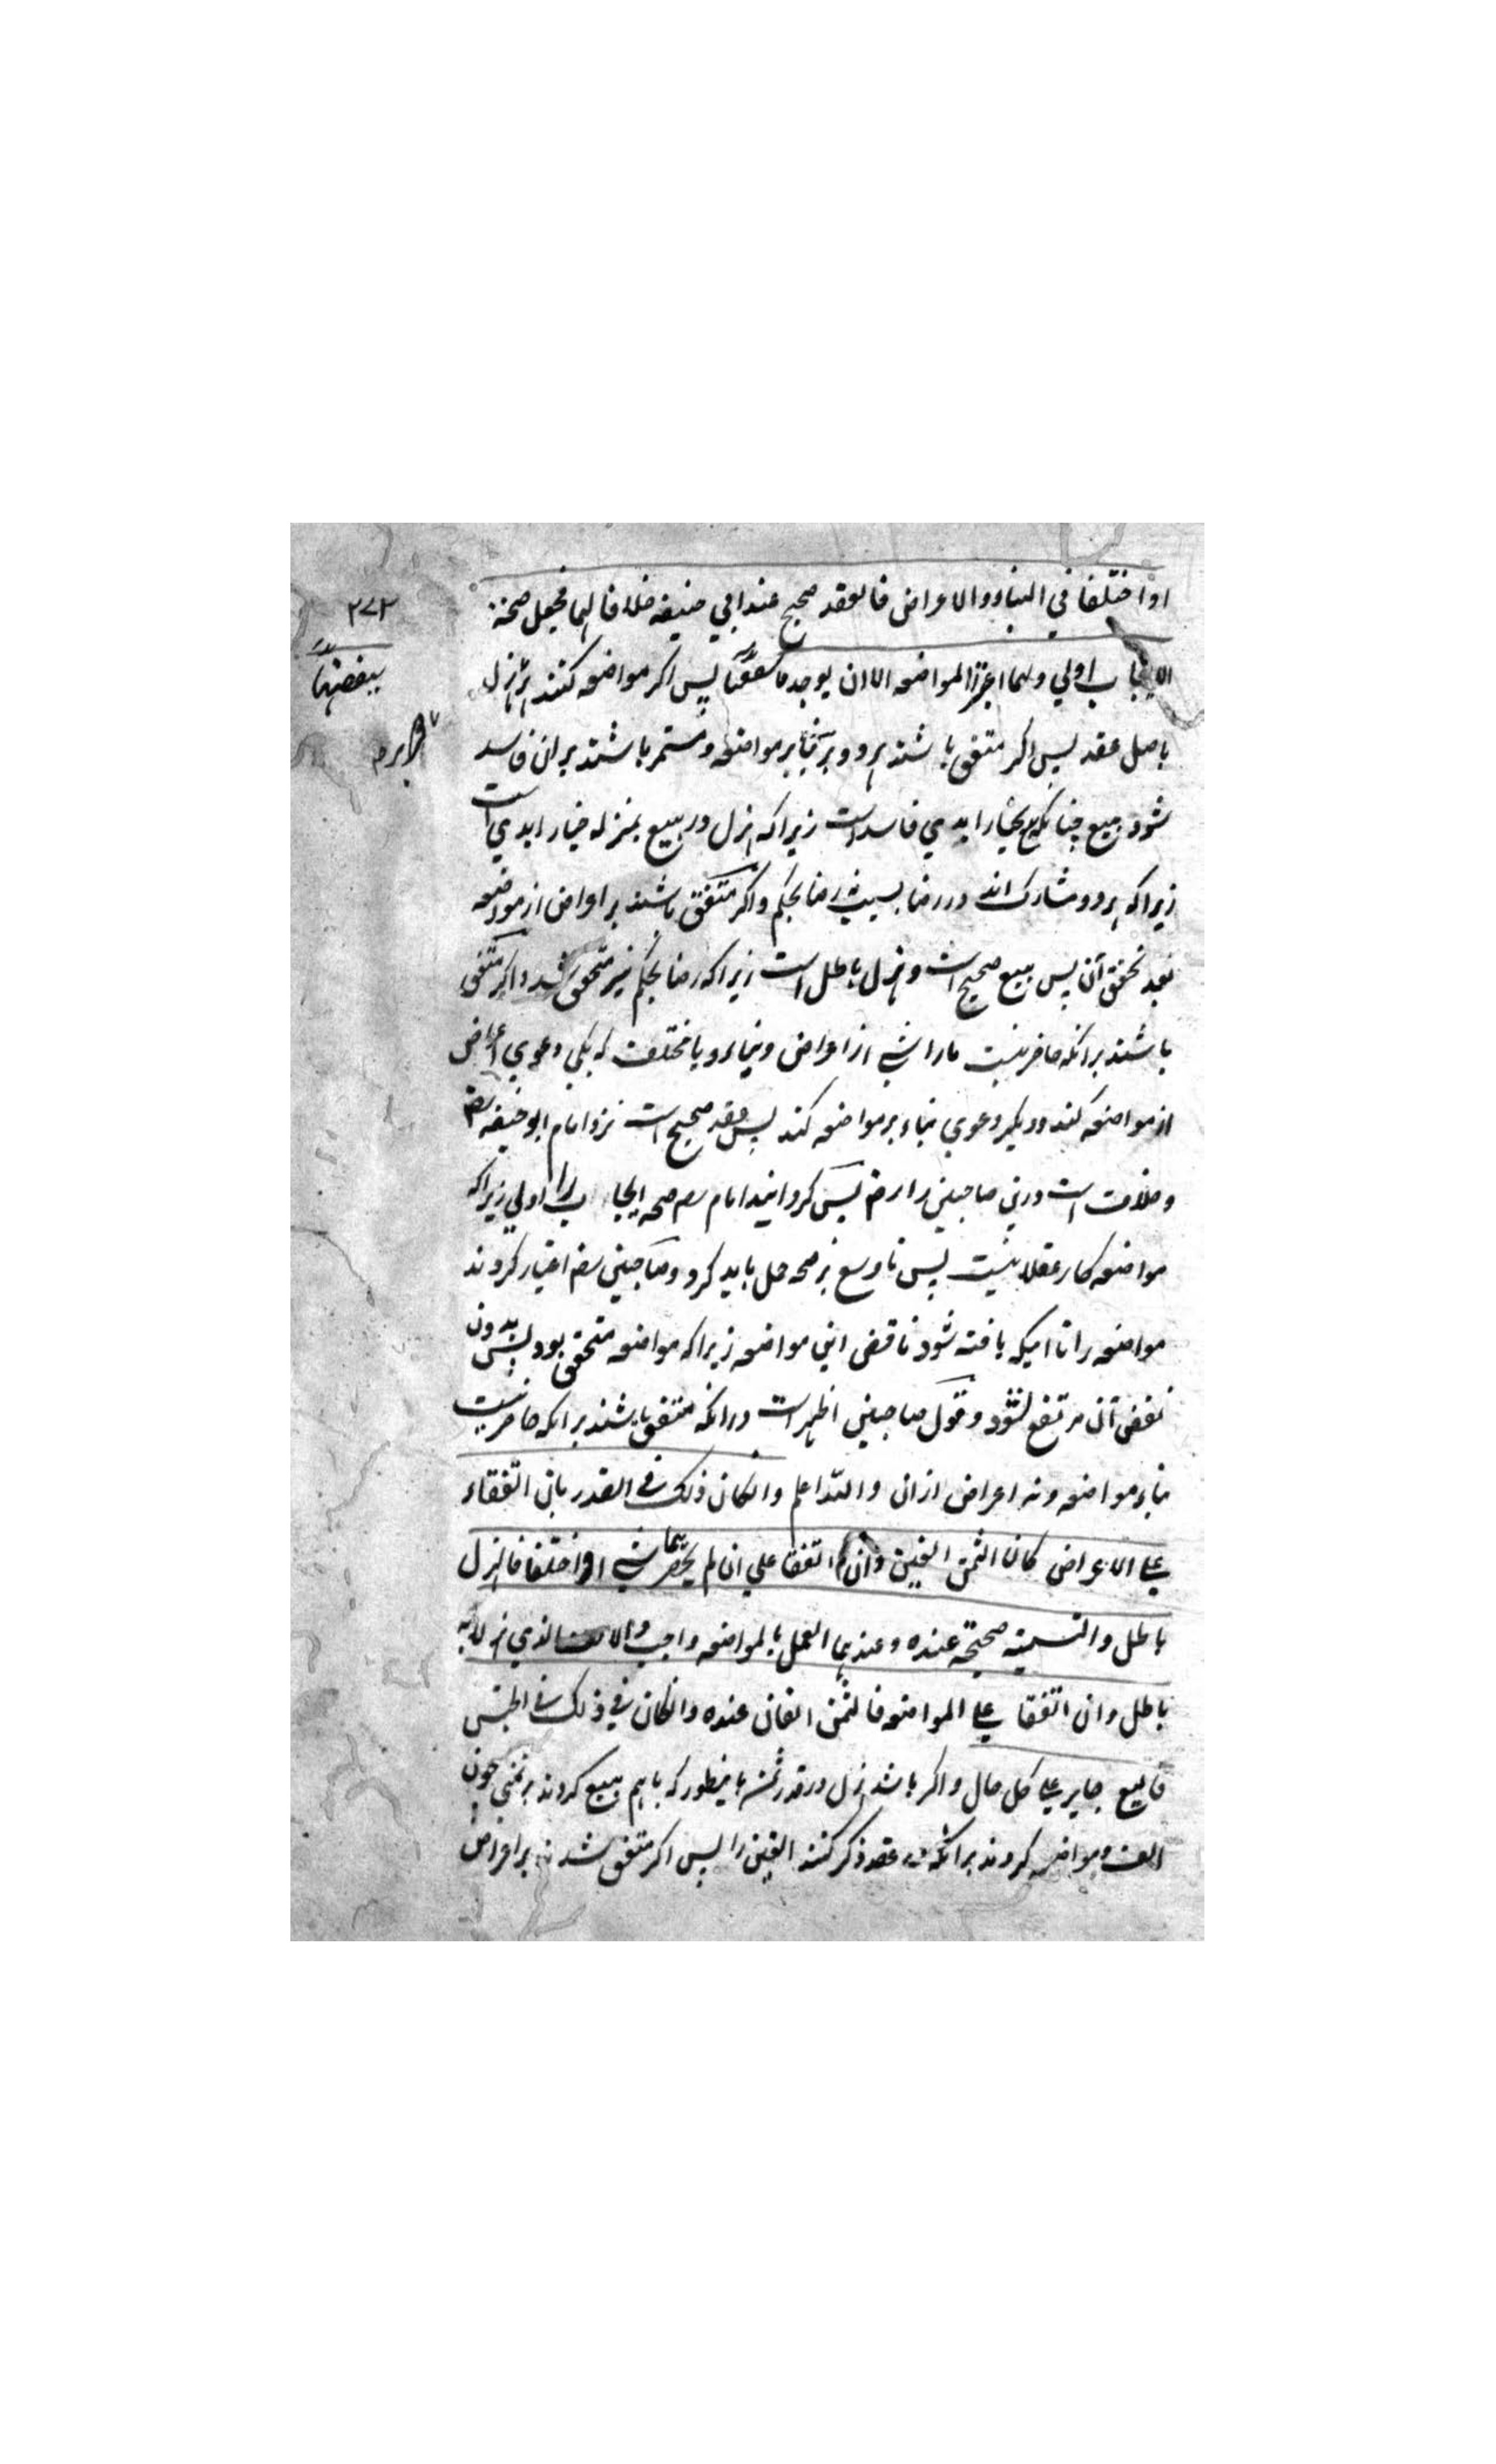 او اختلفا في البناء والاعراض فالعقد صحيح عند ابي حنيفه خلافا لهما فجعل صحة
الايجاب اولي وهما اعتبرا المواضعه الا ان يوجد ما پس اگر مواضعه کنند بر هزل
باصل عقد پس اگر متفق باشند هر دو بر بناء بر مواضعه و مستمر باشند بران فاسد
شود بيع چنانکه بيع بخيار ابدي فاسد است زيراکه هزل در بيع بمنزله خيار ابدي است
زيراکه هر دو مشارک اند در رضا بسبب نه رضا بحکم و اگر متفق باشند بر اعراض از مواضعه
بعد تحقق آن پس بيع صحيح است و هزل باطل است زيراکه رضا بحکم نيز متحقق شد و اگر متفق
باشند برانکه حاضر نيست مارا شي از اعراض و بناء و يا مختلف که يکي دعوي اعراض
از مواضعه کند و ديگر دعوي بناء بر مواضعه کند پس عقد صحيح است نزد امام ابو حنيفه رضه
و خلاف است درين صاحبين را رضه پس گردانيد امام رضه صحه ايجاب را اولي زيراکه
مواضعه کار عقلا نيست پس تا وسع بر صحه حمل بايد کرد و صاحبين رضه اعتبار کردند
مواضعه را تا اميکه يافته شود ناقض اين مواضعه زيراکه مواضعه متحقق بود پس بدون
نقض آن مرتفع نشود و قول صاحبين اظهر است درانکه متفق باشند برانکه حاضر نيست
بناء مواضعه و نه اعراض ازان والله اعلم وان كان ذلك في القدر بان اتفقاء
علي الاعراض كان الثمن الفين وان اتفقا علي ان لم يحضرهما شي او اختلفا فالهزل
باطل والتسمية صحيحة عنده وعندهما العمل بالمواضعه واجب والالف الذي هزلا به
باطل وان اتفقا علي المواضعه فالثمن الفان عنده وان كان في ذلك في الجنس
فالبيع جايز علي كل حال و اگر باشد هزل در قدر ثمن باينطور که باهم بيع کردند بر ثمني چون
الف و مواضعه کردند برانکه در عقد ذکر کنند الفين را پس اگر متفق شدند بر اعراض
۲۷۳